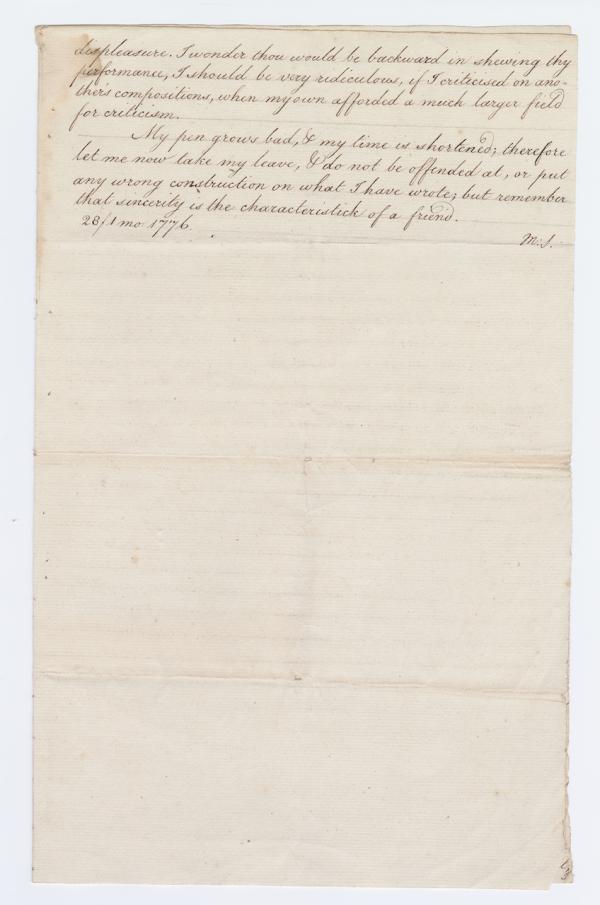 displeasure. I wonder thou would be backward in shewing thy
performance, I should be very ridiculous, if I criticised on ano-
ther's compositions, when my own afforded a much larger field
for criticism.
My pen grows bad, & my time is shortened; therefore
let me now take my leave, & do not be offended at, or put
any wrong construction on what I have wrote; but remember
that sincerity is the characteristick of a friend.
28/1 mo 1776.
M:S.